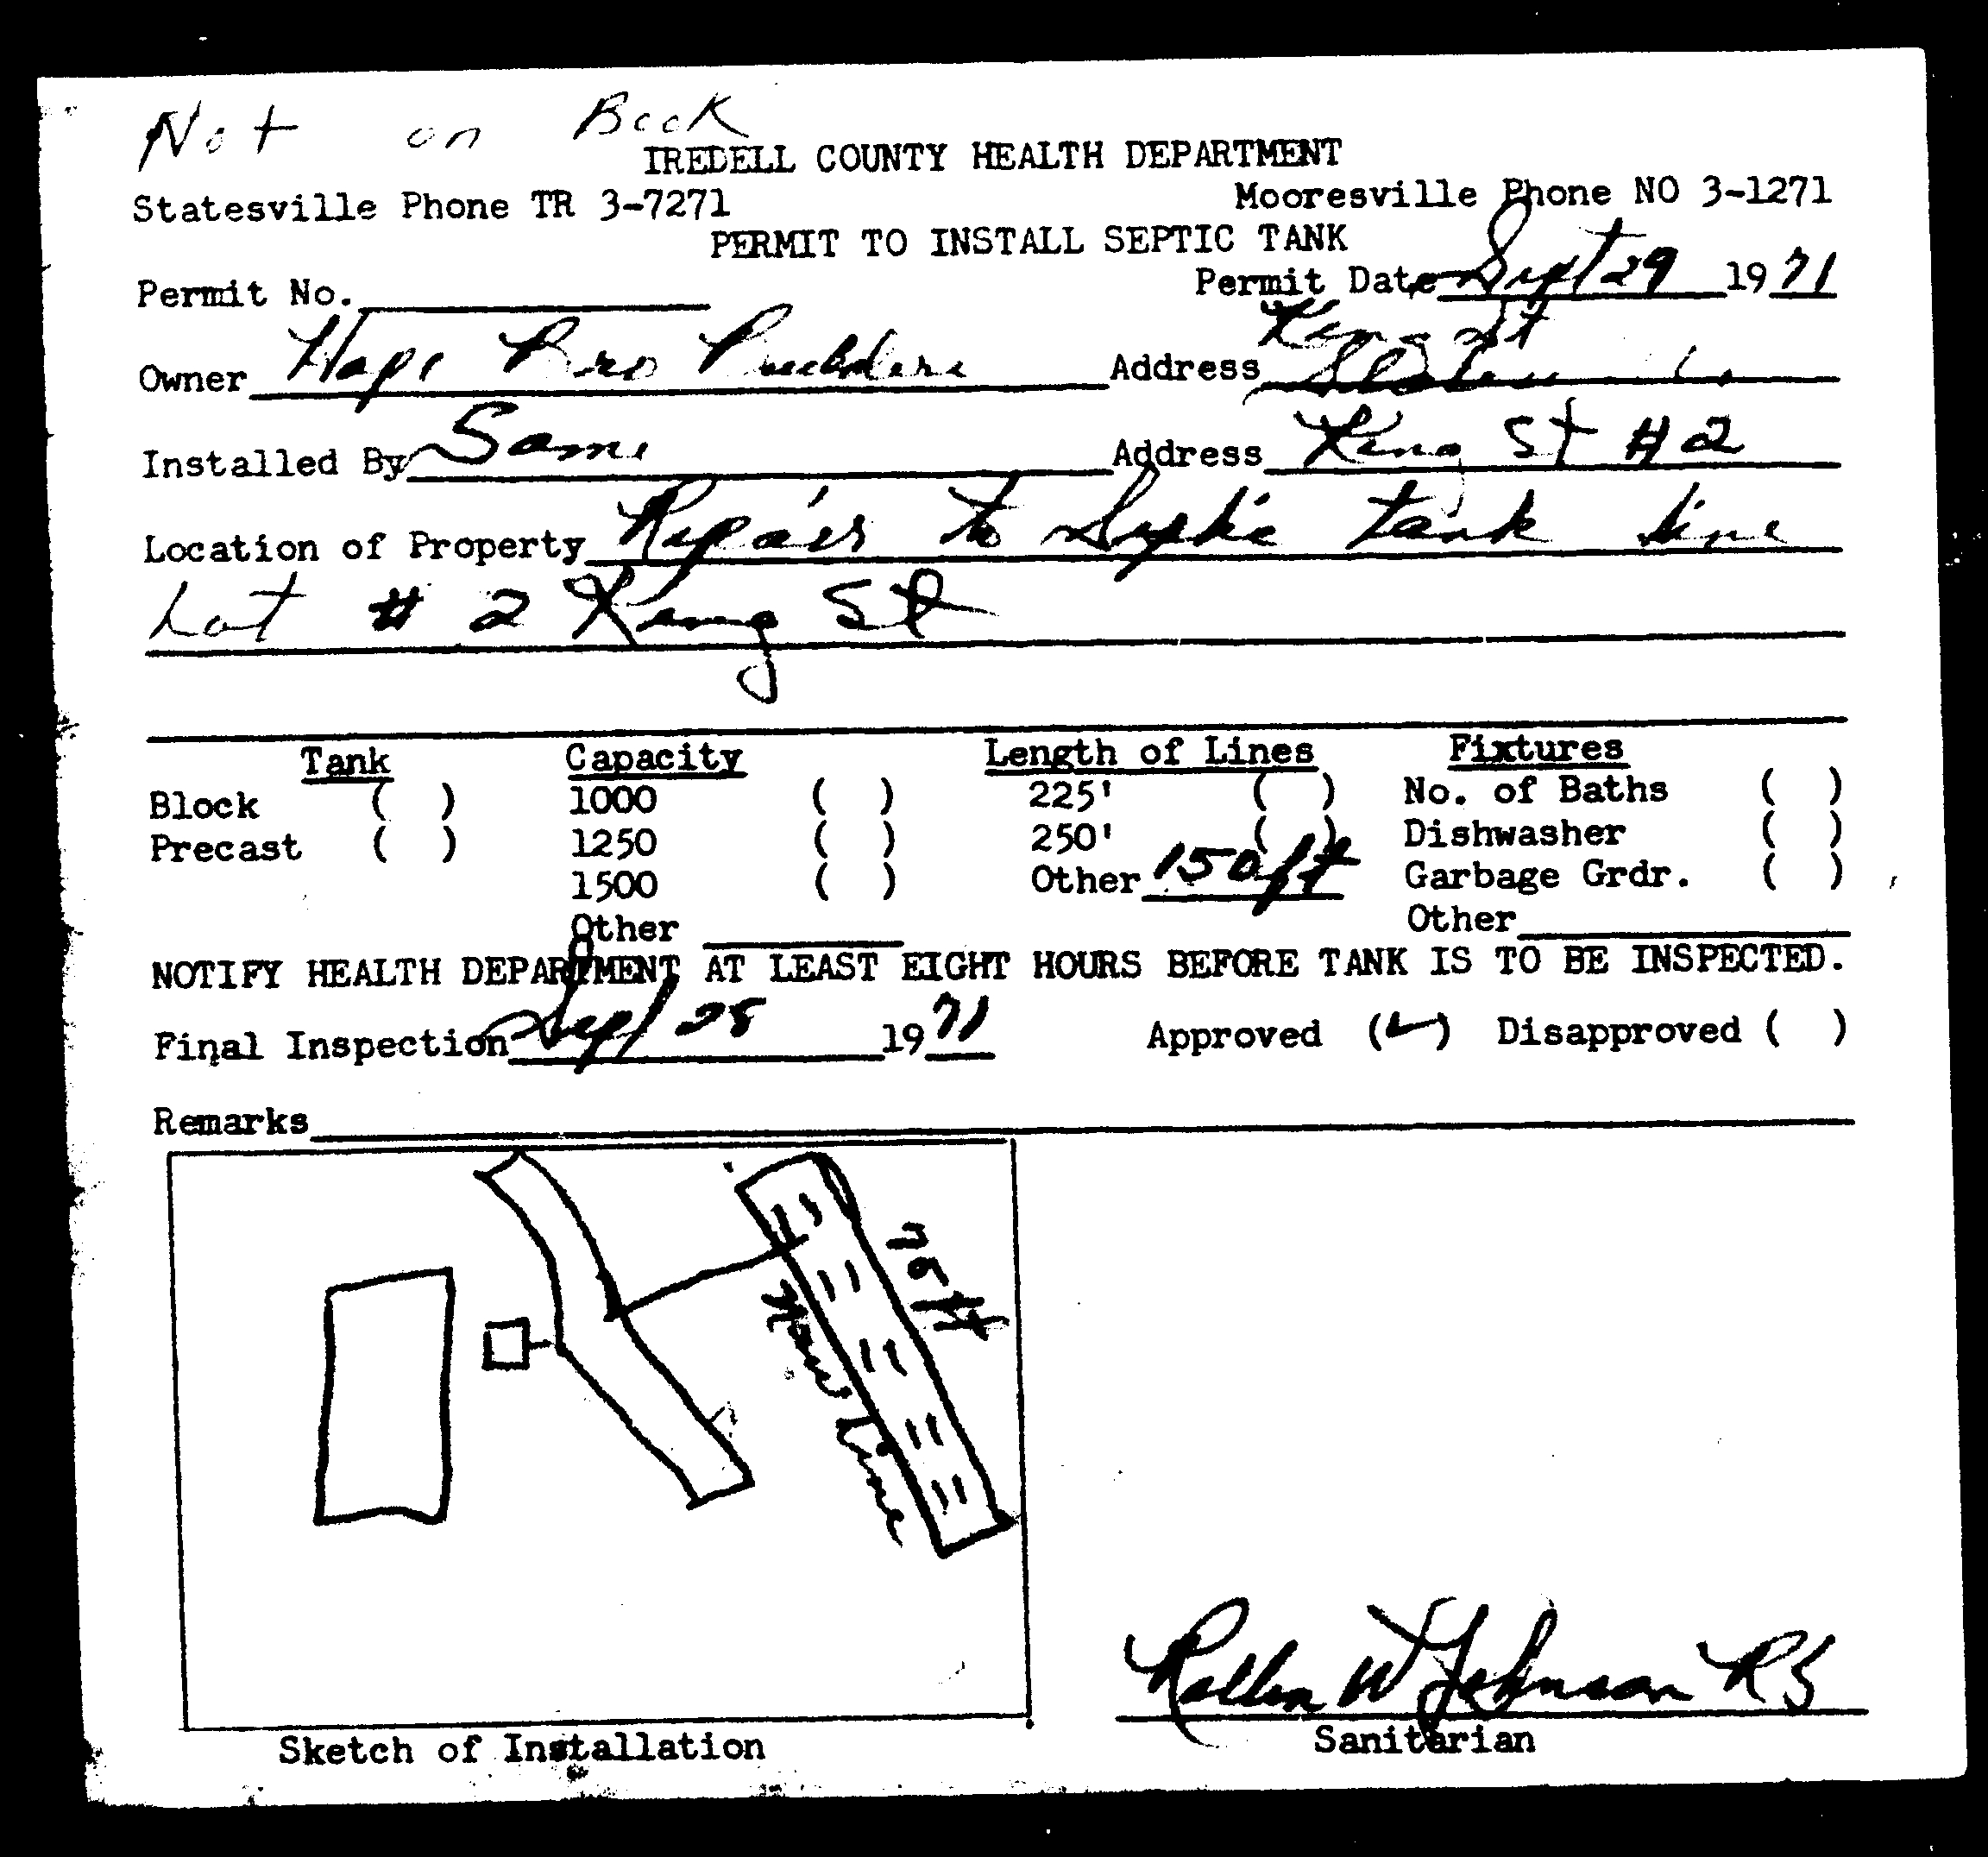 Not on Book
IREDELL COUNTY HEALTH DEPARTMENT
Statesville Phone TR 3-7271 Mooresville Phone NO 3-1271
PERMIT TO INSTALL SEPTIC TANK
Permit No. Permit Date Sept 29 1971
King St
Owner Bro Builders Address
Installed By Same Address King St #2
Location of Property Repairs to Septic tank line
Lot # 2 King St
Tank Capacity Length of Lines Fixtures
Block ( ) 1000 ( ) 225' ( ) No. of Baths ( )
Precast ( ) 1250 ( ) 250' ( ) Dishwasher ( )
1500 ( ) Other 150 ft Garbage Grdr. ( )
Other Other
NOTIFY HEALTH DEPARTMENT AT LEAST EIGHT HOURS BEFORE TANK IS TO BE INSPECTED.
Final Inspection Sept 28 1971 Approved (✓) Disapproved ( )
Remarks
75 ft
New Line
Rollin W Johnson RS
Sketch of Installation Sanitarian